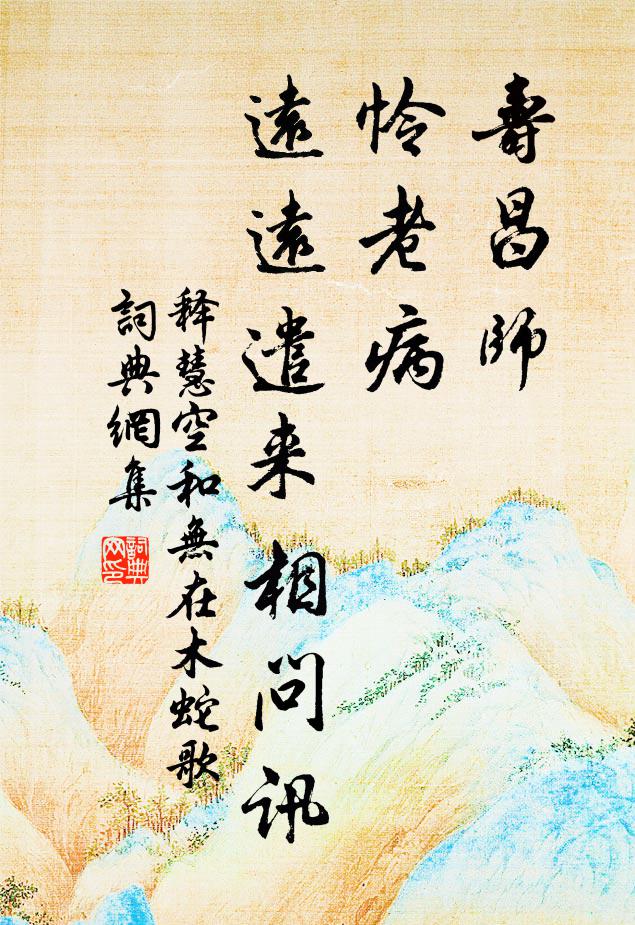 壽昌師
怜老病
遠遠遣来相問訊
释慧空和無在木蛇歌
詞典網集
詞典网印